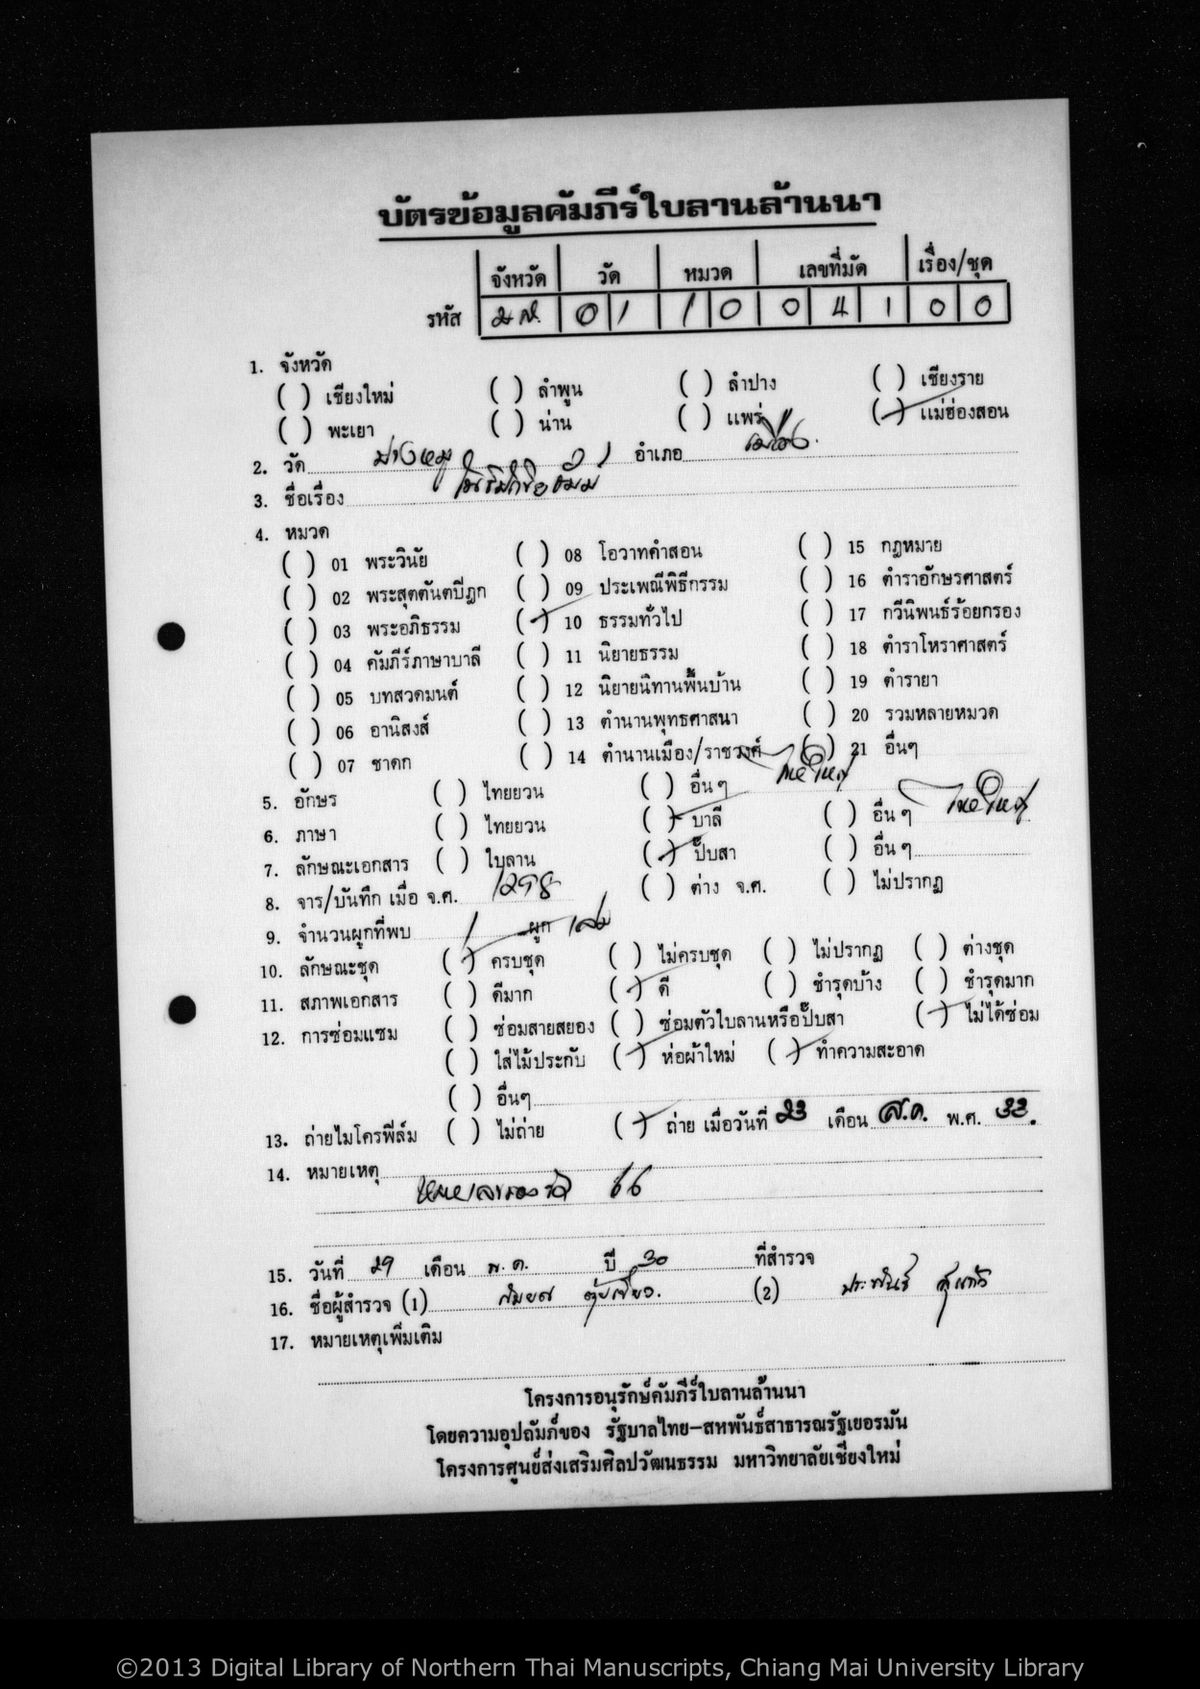 บัตรข้อมูลคัมภีร์ใบลานล้านนา
จังหวัด วัด หมวด เลขที่มัด เรื่อง/ชุด
รหัส มส. 01 10 041 00
1. จังหวัด
( ) เชียงใหม่ ( ) ลำพูน ( ) ลำปาง ( ) เชียงราย
( ) พะเยา ( ) น่าน ( ) แพร่ (/) แม่ฮ่องสอน
2. วัด ปางหมู อำเภอ เมือง.
3. ชื่อเรื่อง
4. หมวด
( ) 01 พระวินัย ( ) 08 โอวาทคำสอน ( ) 15 กฎหมาย
( ) 02 พระสุตตันตปีฎก ( ) 09 ประเพณีพิธีกรรม ( ) 16 ตำราอักษรศาสตร์
( ) 03 พระอภิธรรม (/) 10 ธรรมทั่วไป ( ) 17 กวีนิพนธ์ร้อยกรอง
( ) 04 คัมภีร์ภาษาบาลี ( ) 11 นิยายธรรม ( ) 18 ตำราโหราศาสตร์
( ) 05 บทสวดมนต์ ( ) 12 นิยายนิทานพื้นบ้าน ( ) 19 ตำรายา
( ) 06 อานิสงส์ ( ) 13 ตำนานพุทธศาสนา ( ) 20 รวมหลายหมวด
( ) 07 ชาดก ( ) 14 ตำนานเมือง/ราชวงศ์ ( ) 21 อื่นๆ
5. อักษร ( ) ไทยยวน ( ) อื่น ๆ ไทใหญ่
6. ภาษา ( ) ไทยยวน (/) บาลี ( ) อื่น ๆ ไทใหญ่
7. ลักษณะเอกสาร ( ) ใบลาน (/) ปั๊บสา ( ) อื่น ๆ
8. จาร/บันทึก เมื่อ จ.ศ. 1298 ( ) ต่าง จ.ศ. ( ) ไม่ปรากฏ
9. จำนวนผูกที่พบ 1 ผูก เล่ม
10. ลักษณะชุด (/) ครบชุด ( ) ไม่ครบชุด ( ) ไม่ปรากฏ ( ) ต่างชุด
11. สภาพเอกสาร ( ) ดีมาก (/) ดี ( ) ชำรุดบ้าง ( ) ชำรุดมาก
12. การซ่อมแซม ( ) ซ่อมสายสยอง ( ) ซ่อมตัวใบลานหรือปั๊บสา (/) ไม่ได้ซ่อม
( ) ใส่ไม้ประกับ (/) ห่อผ้าใหม่ (/) ทำความสะอาด
( ) อื่นๆ
13. ถ่ายไมโครฟิล์ม ( ) ไม่ถ่าย (/) ถ่าย เมื่อวันที่ 23 เดือน ส.ค. พ.ศ. 33.
14. หมายเหตุ
หมายเลขของวัด 66
15. วันที่ 29 เดือน พ.ค. ปี 30 ที่สำรวจ
16. ชื่อผู้สำรวจ (1) สมยศ (2) ประพันธ์
17. หมายเหตุเพิ่มเติม
โครงการอนุรักษ์คัมภีร์ใบลานล้านนา
โดยความอุปถัมภ์ของ รัฐบาลไทย-สหพันธ์สาธารณรัฐเยอรมัน
โครงการศูนย์ส่งเสริมศิลปวัฒนธรรม มหาวิทยาลัยเชียงใหม่
©2013 Digital Library of Northern Thai Manuscripts, Chiang Mai University Library